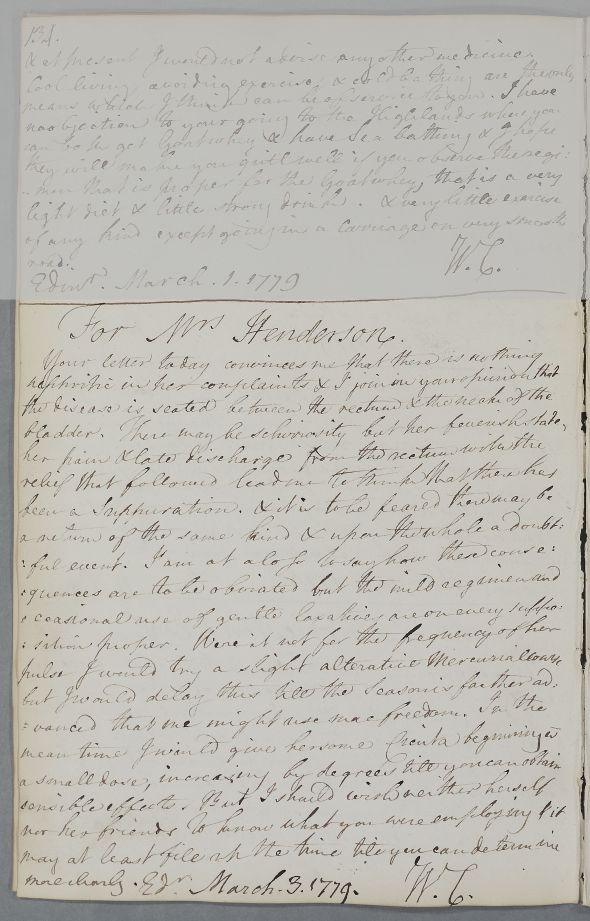 131.
& at present I would not advise any other medicine.
Cool living, avoiding exercise, & cold bathing are the only
means which I think can be of service to you. I have
no objection to your going to the Highlands when you
can both get Goat whey & have Sea bathing & I hope
they will make you quite well if you observe the regi:
:men that is proper for the Goat whey, that is a very
light diet & little strong drink. & very little exercise
of any kind except going in a Carriage on very smooth
road.
W.C.
Edinr. March. 1. 1779
For Mrs Henderson.
Your letter today convinces me that there is nothing
nephritic in her complaints & I join in your opinion that
the disease is seated between the rectum & the neck of the
bladder. There may be schirrosity but her feverish state,
her pain & late discharge from the rectum with the
relief that followed lead me to think that there has
been a Suppuration. & it is to be feared there may be
a return of the same kind & upon the whole a doubt:
:ful event. I am at a loss to say how these conse:
:quences are to be obviated but the mild regimen and
occasional use of gentle laxatives are on every suppo:
:sition proper. Were it not for the frequency of her
pulse I would try a slight alterative Mercurial course
but I would delay this till the Season is farther ad:
:vanced that we might use more freedom. In the
mean time I would give her some Cicuta beginning with
a small dose, increasing by degrees till you can obtain
sensible effects. But I should wish neither herself
nor her friends to know what you were employing & it
may at least file up the time till you can determine
more clearly. Edr. March. 3. 1779. W.C.